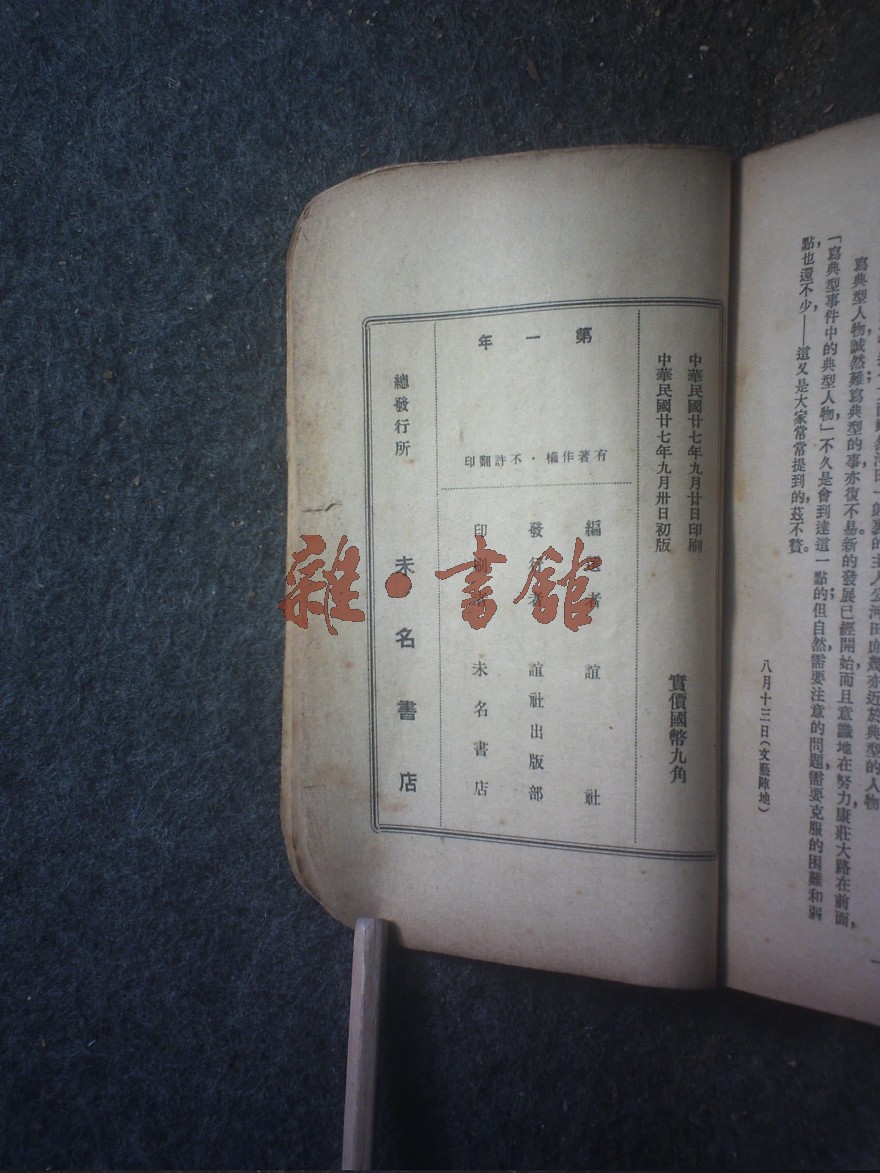 寫典型人物誠然難寫典型的事亦復不易新的發展已經開始而且意識地在努力康莊大路在前面，
「寫典型事件中的典型人物」不久是會到達這一點的但自然需要注意的問題需要克服的困難和弱
點，也還不少——這又是大家常常提到的，茲不贅。
八月十三日（文藝陣地）
中華民國廿七年九月廿日印刷
中華民國廿七年九月卅日初版
實價國幣九角
第一年
有著作權・不許翻印
編 者 誼社
發行者 誼社出版部
印刷 未名書店
總發行所 未名書店
雜・書館